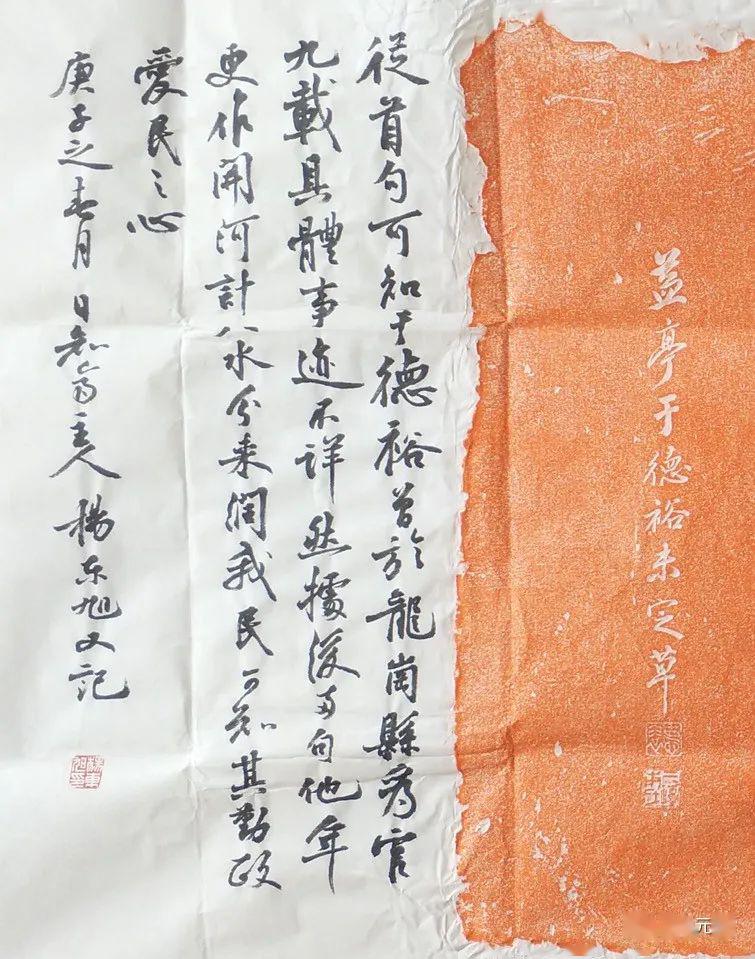 益亭于德裕未定草
從首句可知于德裕曾於龍崗縣為官
九載具體事迹不詳然據後兩句他年
更作開河計 水分來潤我民可知其勤政
愛民之心
庚子之春月日知齋主人楊東旭又記
元